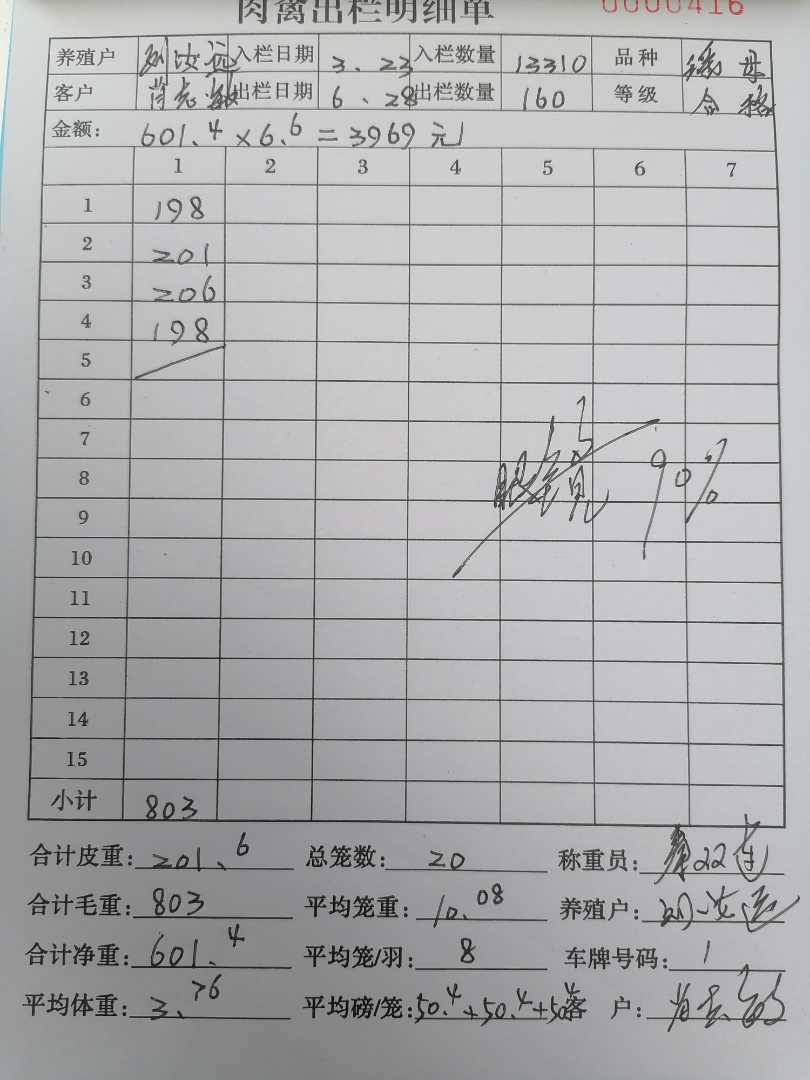 肉禽出栏明细单 0000416
养殖户 刘汝远 入栏日期 3.23 入栏数量 13310 品种
客户 肖志敏 出栏日期 6.28 出栏数量 160 等级 合格
金额: 601.4×6.6=3969元
1 2 3 4 5 6 7
1 198
2 201
3 206
4 198
5
6
7
8 90%
9
10
11
12
13
14
15
小计 803
合计皮重: 201.6 总笼数: 20 称重员:
合计毛重: 803 平均笼重: 10.08 养殖户: 刘汝远
合计净重: 601.4 平均笼/羽: 8 车牌号码: 1
平均体重: 3.76 平均磅/笼: 50.4+50.4+50.4 客户: 肖志敏